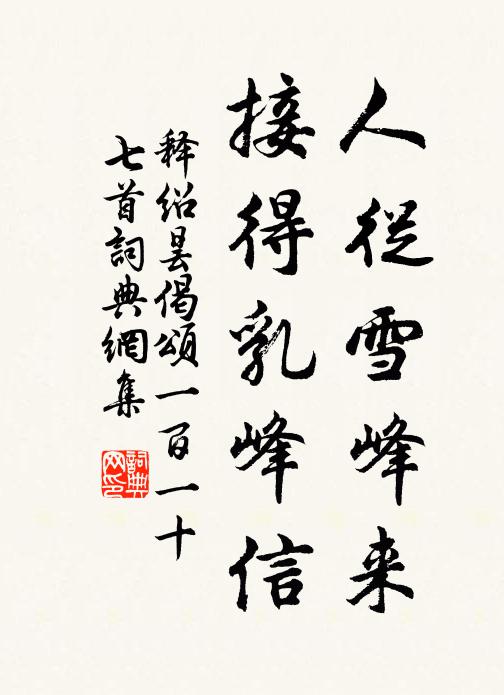 人從雪峰来
接得乳峰信
释绍昙偈頌一百一十
七首詞典網集
詞典
网印